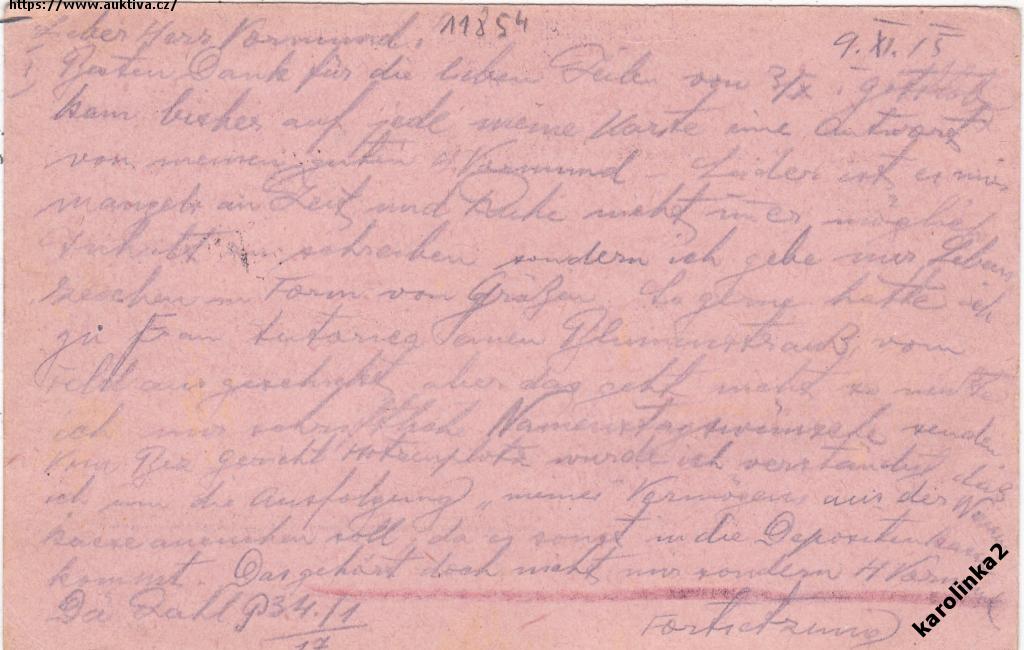 https://www.auktiva.cz/
11854
Lieber Herr Vormund!
9. XI. 15
Besten Dank für die lieben Zeilen vom 3/X.
kam bisher auf jede meine Karte eine Antwort
von meinem guten H Vormund - Leider ist es mir
mangels an Zeit und Ruhe nicht möglich
schreiben sondern ich gebe nur Lebens
zeichen in Form von Grüßen. So gerne hätte ich
zu Frau einen Blumenstrauß vom
Feld aus geschickt, aber das geht nicht so
ich nur schriftliche Namenstagswünsche senden
Vom Bez gericht Hotzenplotz wurde ich verständigt, daß
ich um die Ausfolgung "meines" Vermögens aus der
ansuchen soll, da es sonst in die Depositen
kommt. Das gehört doch nicht mir sondern H Vormund
Da Zahl P 34/11
17
Fortsetzung
karolinka2